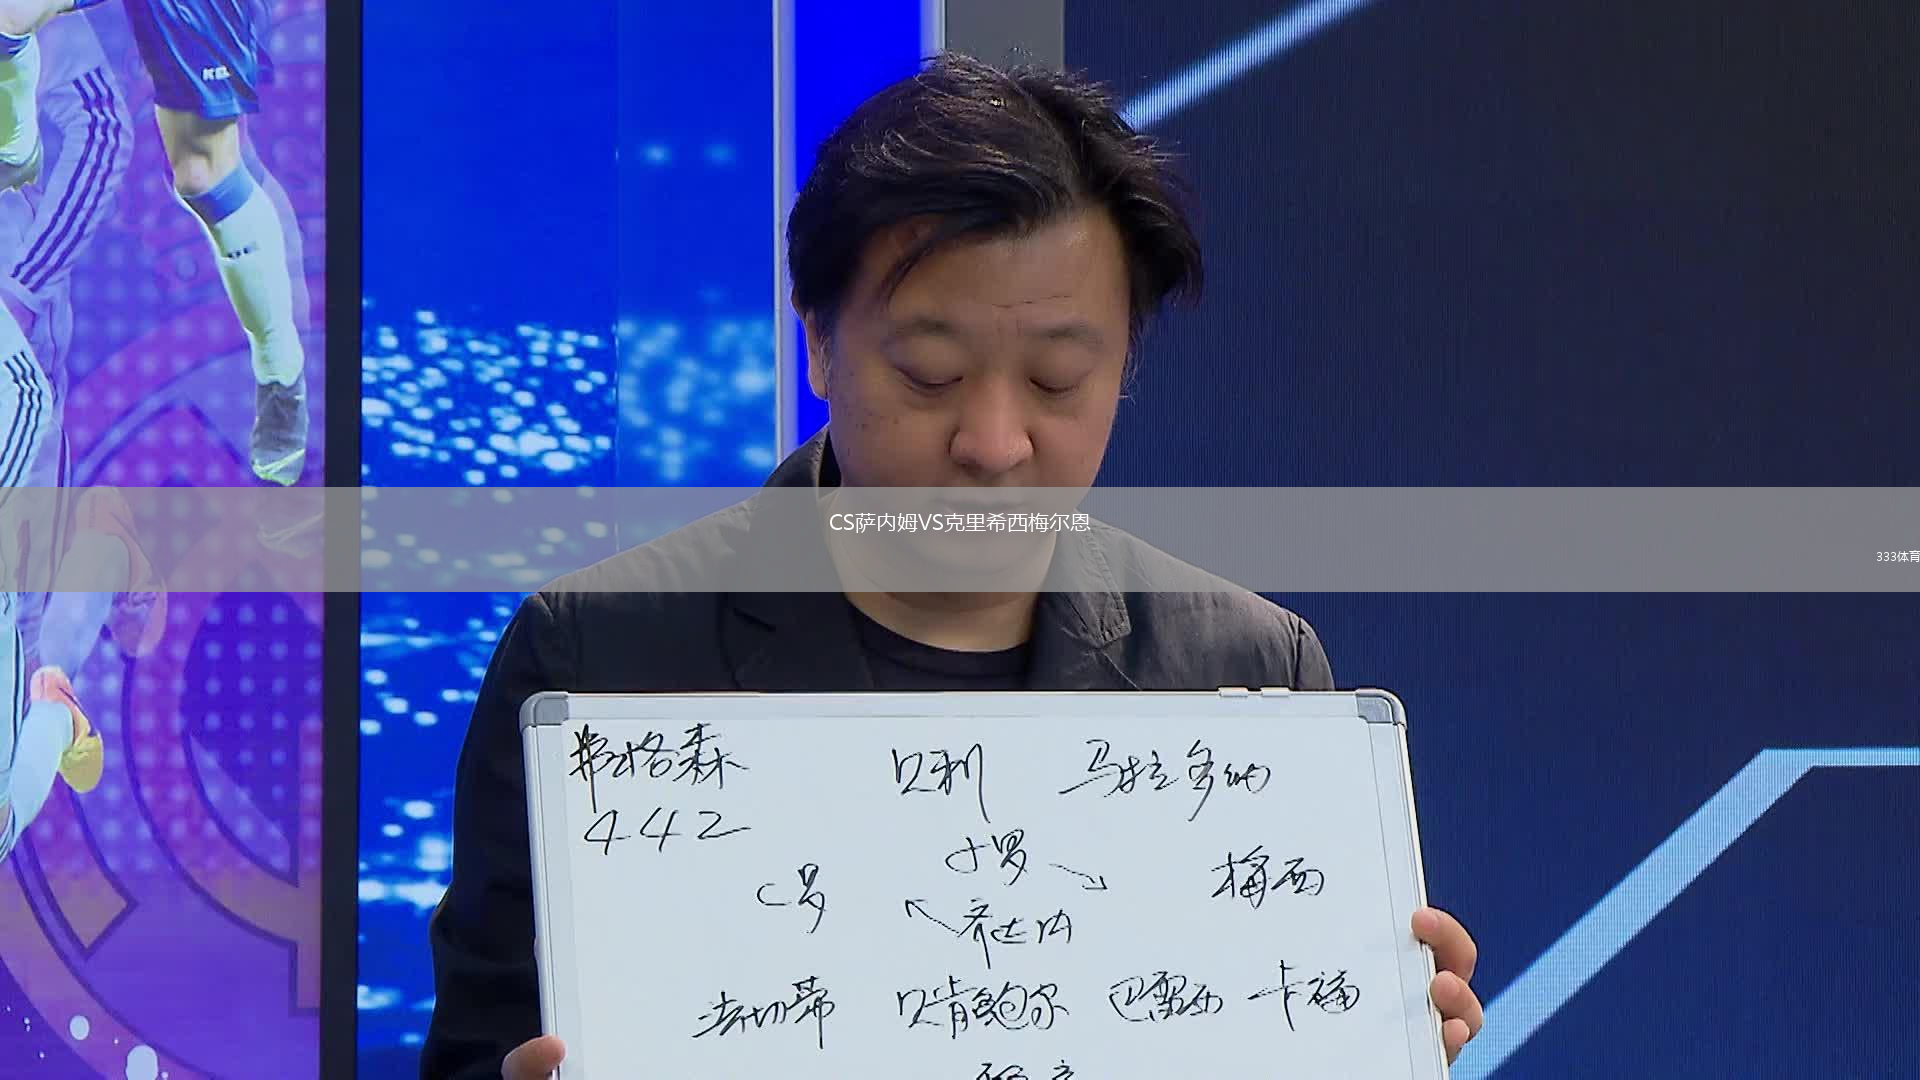 KE
CS萨内姆VS克里希西梅尔恩
333体育
弗格森 贝利 马拉多纳
442
小罗
C罗 梅西
齐达内
法切蒂 贝肯鲍尔 巴雷西 卡福